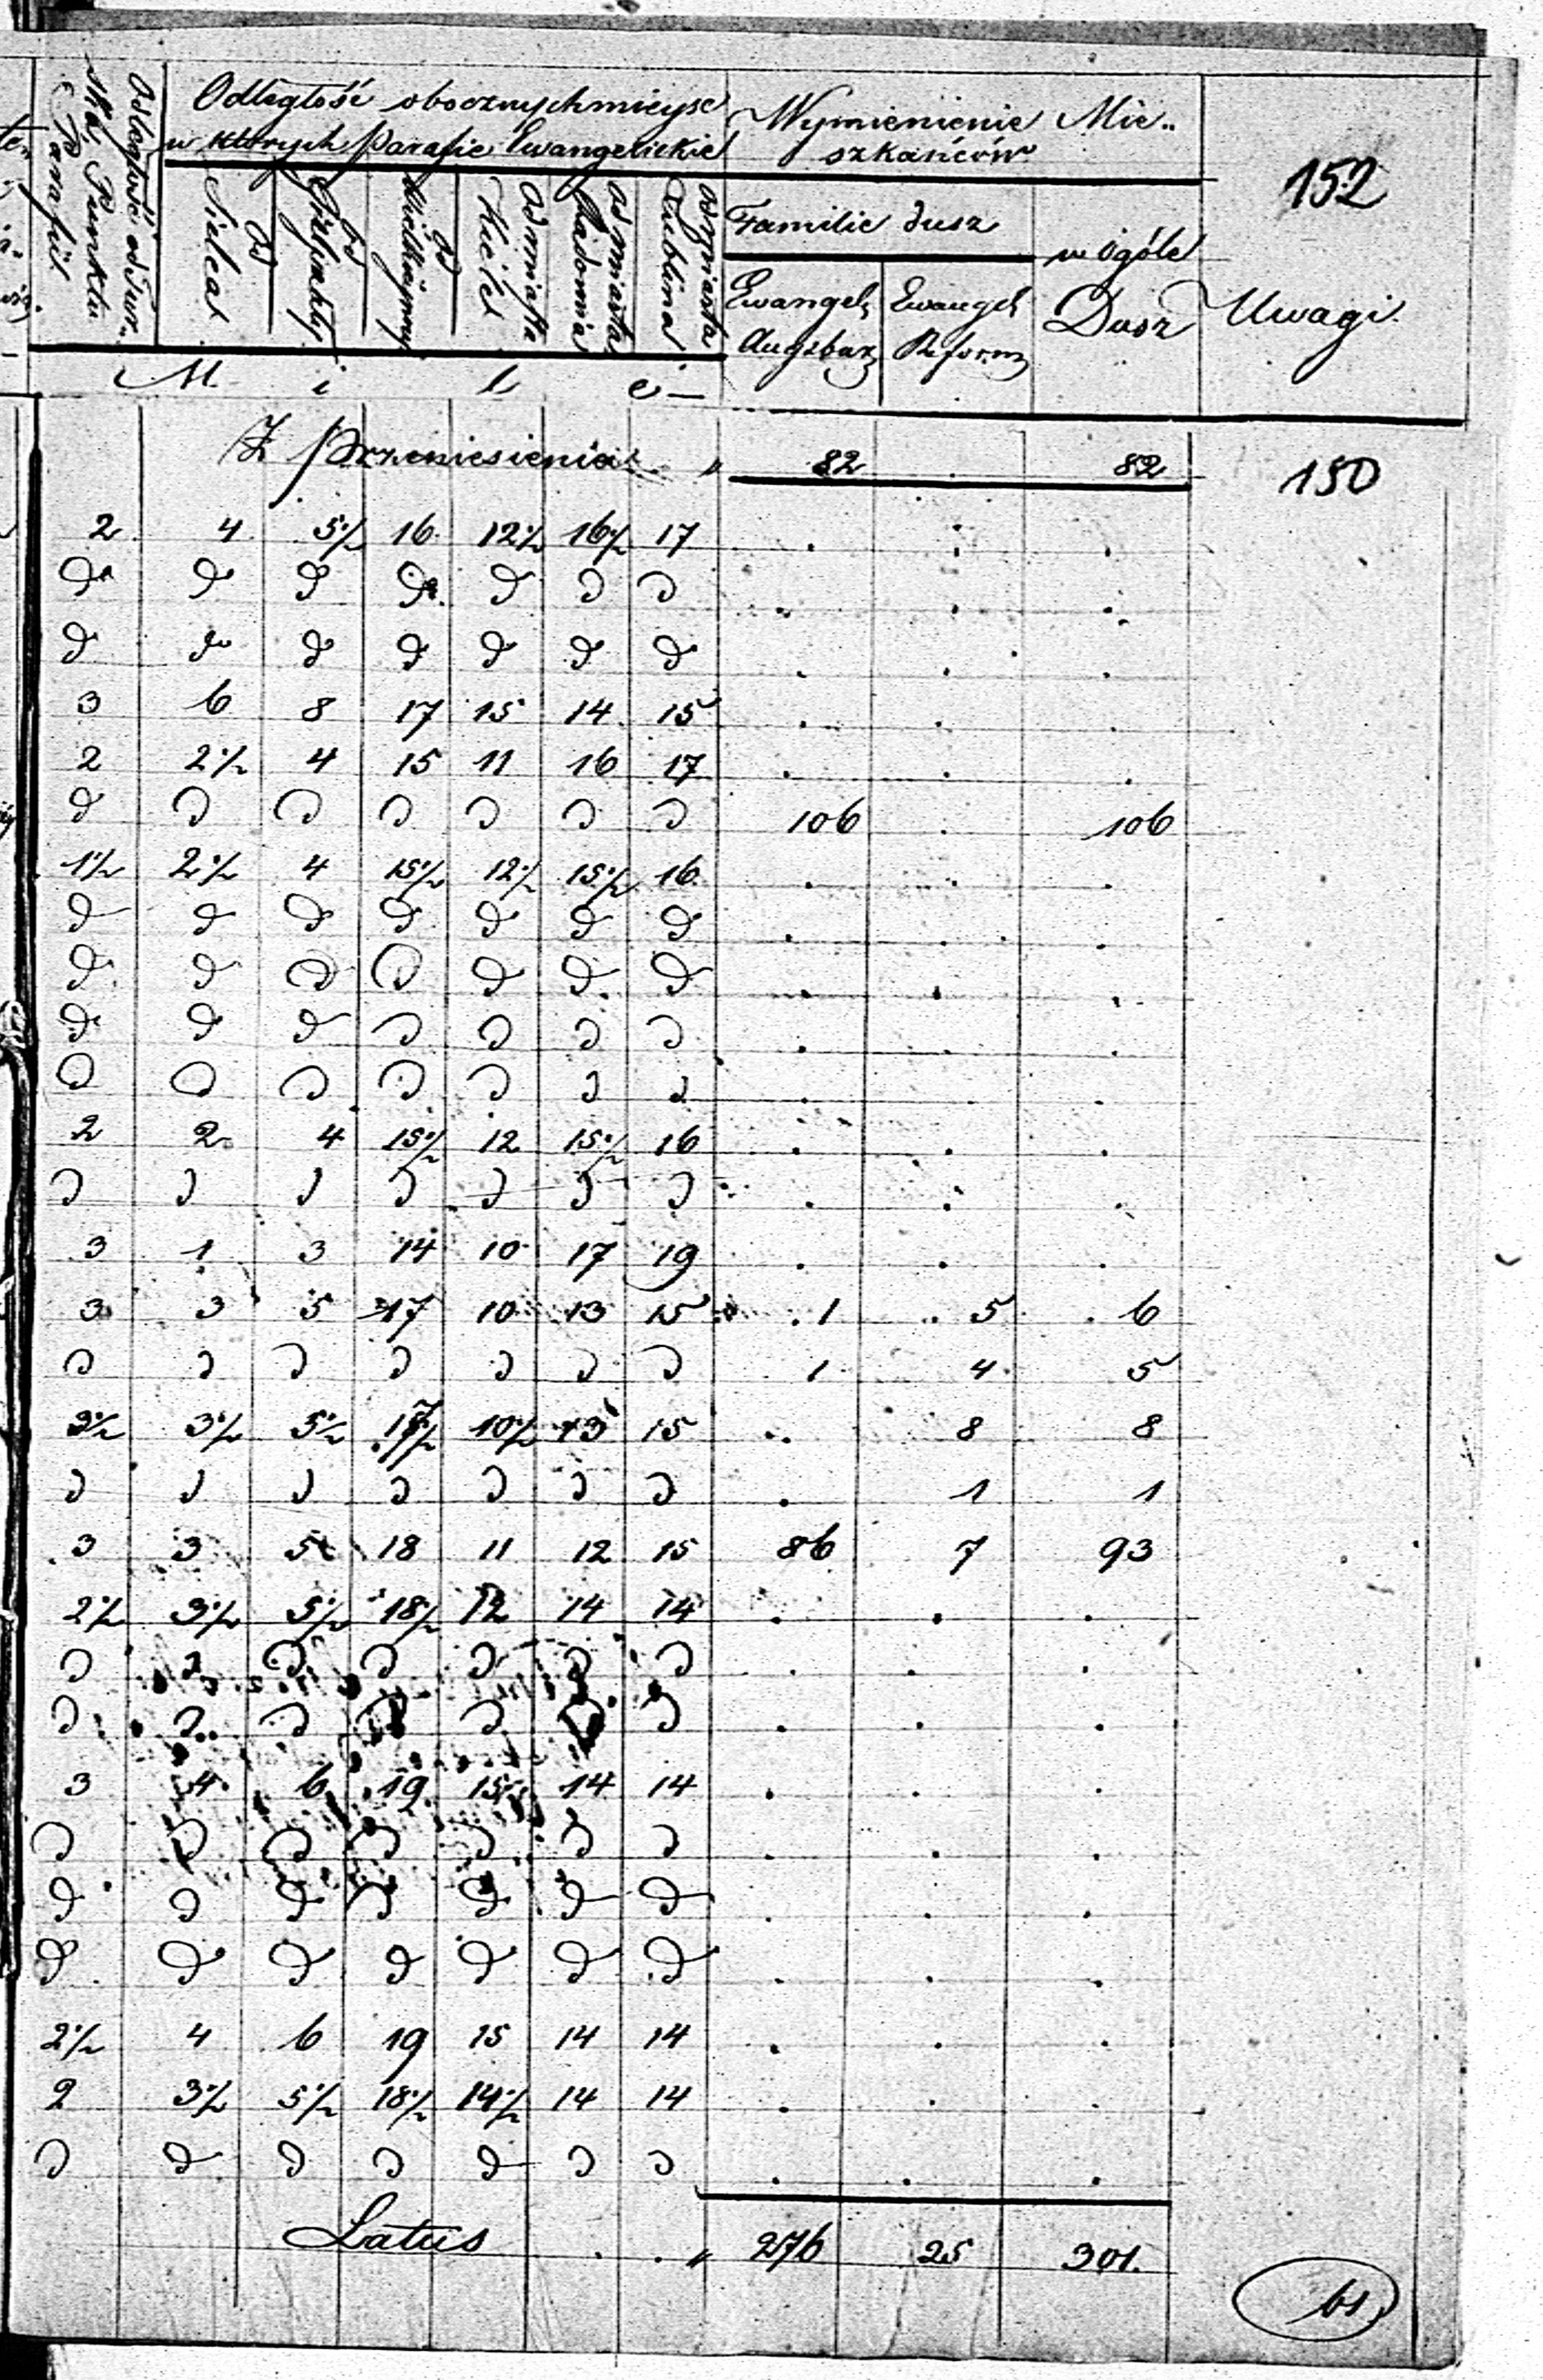 Odległość obocznych mieysc
w których Parafie Ewangelickie
Wymienienie Mie..
szkańców
152
Odległość od Pun..
Punktu
Parafii
Od
Od
Od
Od miasta
Kielc
Od miasta
Radomia
Od miasta
Lublina
Familie dusz
w ogóle
Dusz
Uwagi
Ewangel
Augsbur
Ewangel
Reform
M i l e
Z Przeniesienia „ 82 . 82
150
2 4 5½ 16 12½ 16½ 17 . . .
do do do do do do do . . .
do do do do do do do . . .
3 6 8 17 15 14 15 . . .
2 2½ 4 15 11 16 17 . . .
d d d d d d d 106 . 106
1½ 2½ 4 15½ 12½ 15½ 16 . . .
d d d d d d d . . .
d d d d d d d . . .
d d d d d d d . . .
d d d d d d d . . .
2 2 4 15½ 12 15½ 16 . . .
d d d d d d d . . .
3 1 3 14 10 17 19 . . .
3 3 5 17 10 13 15 1 5 6
d d d d d d d 1 4 5
3½ 3½ 5½ 17½ 10½ 13 15 . 8 8
d d d d d d d . 1 1
3 3 5 18 11 12 15 86 7 93
2½ 3½ 5½ 18½ 12 14 14 . . .
d d d d d d d . . .
d d d d d d d . . .
3 4 6 19 15 14 14 . . .
d d d d d d d . . .
d d d d d d d . . .
d d d d d d d . . .
2½ 4 6 19 15 14 14 . . .
2 3½ 5½ 18½ 14½ 14 14 . . .
d d d d d d d . . .
Latus . . „ 276 25 301.
61